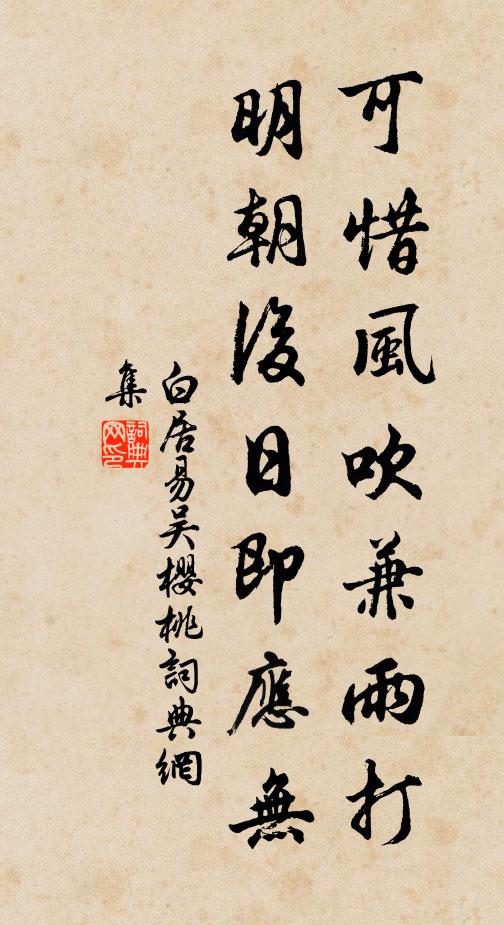 可惜風吹兼雨打
明朝後日即應無
白居易吴櫻桃詞典網
集
詞典
网印